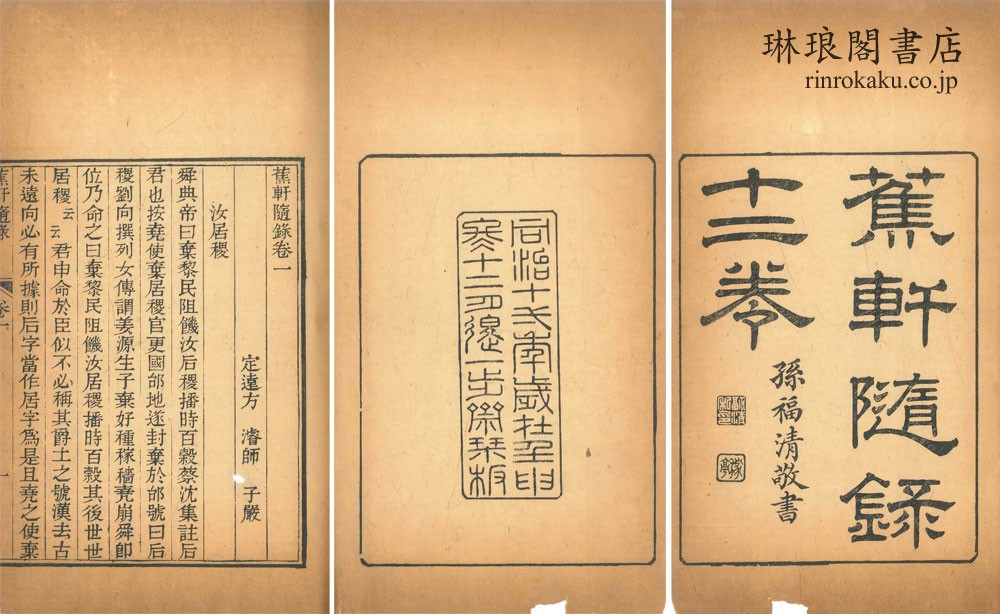 琳琅閣書店
rinrokaku.co.jp
蕉軒隨錄
十二卷
孫福清敬書
同治十弌年歲在壬申
十二月退一步齋栞板
蕉軒隨錄卷一
定遠方 濬師 子嚴
汝居稷
舜典帝曰棄黎民阻饑汝后稷播時百穀蔡沈集註后
君也按堯使棄居稷官更國邰地遂封棄於邰號曰后
稷劉向撰列女傳謂姜源生子棄好種稼穡堯崩舜卽
位乃命之曰棄黎民阻饑汝居稷播時百穀其後世世
居稷云云君申命於臣似不必稱其爵土之號漢去古
未遠向必有所據則后字當作居字爲是且堯之使棄
蕉軒隨錄 卷一 一